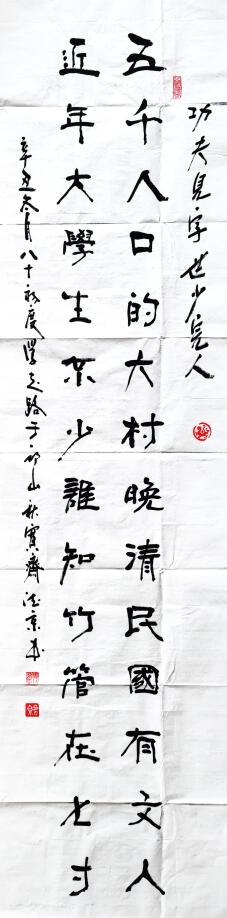 功夫見字世少完人
五千人口的大村晚清民國有文人
近年大學生不少誰知竹管在七寸
辛丑冬月八十初度學書路于山秋實齋德京书